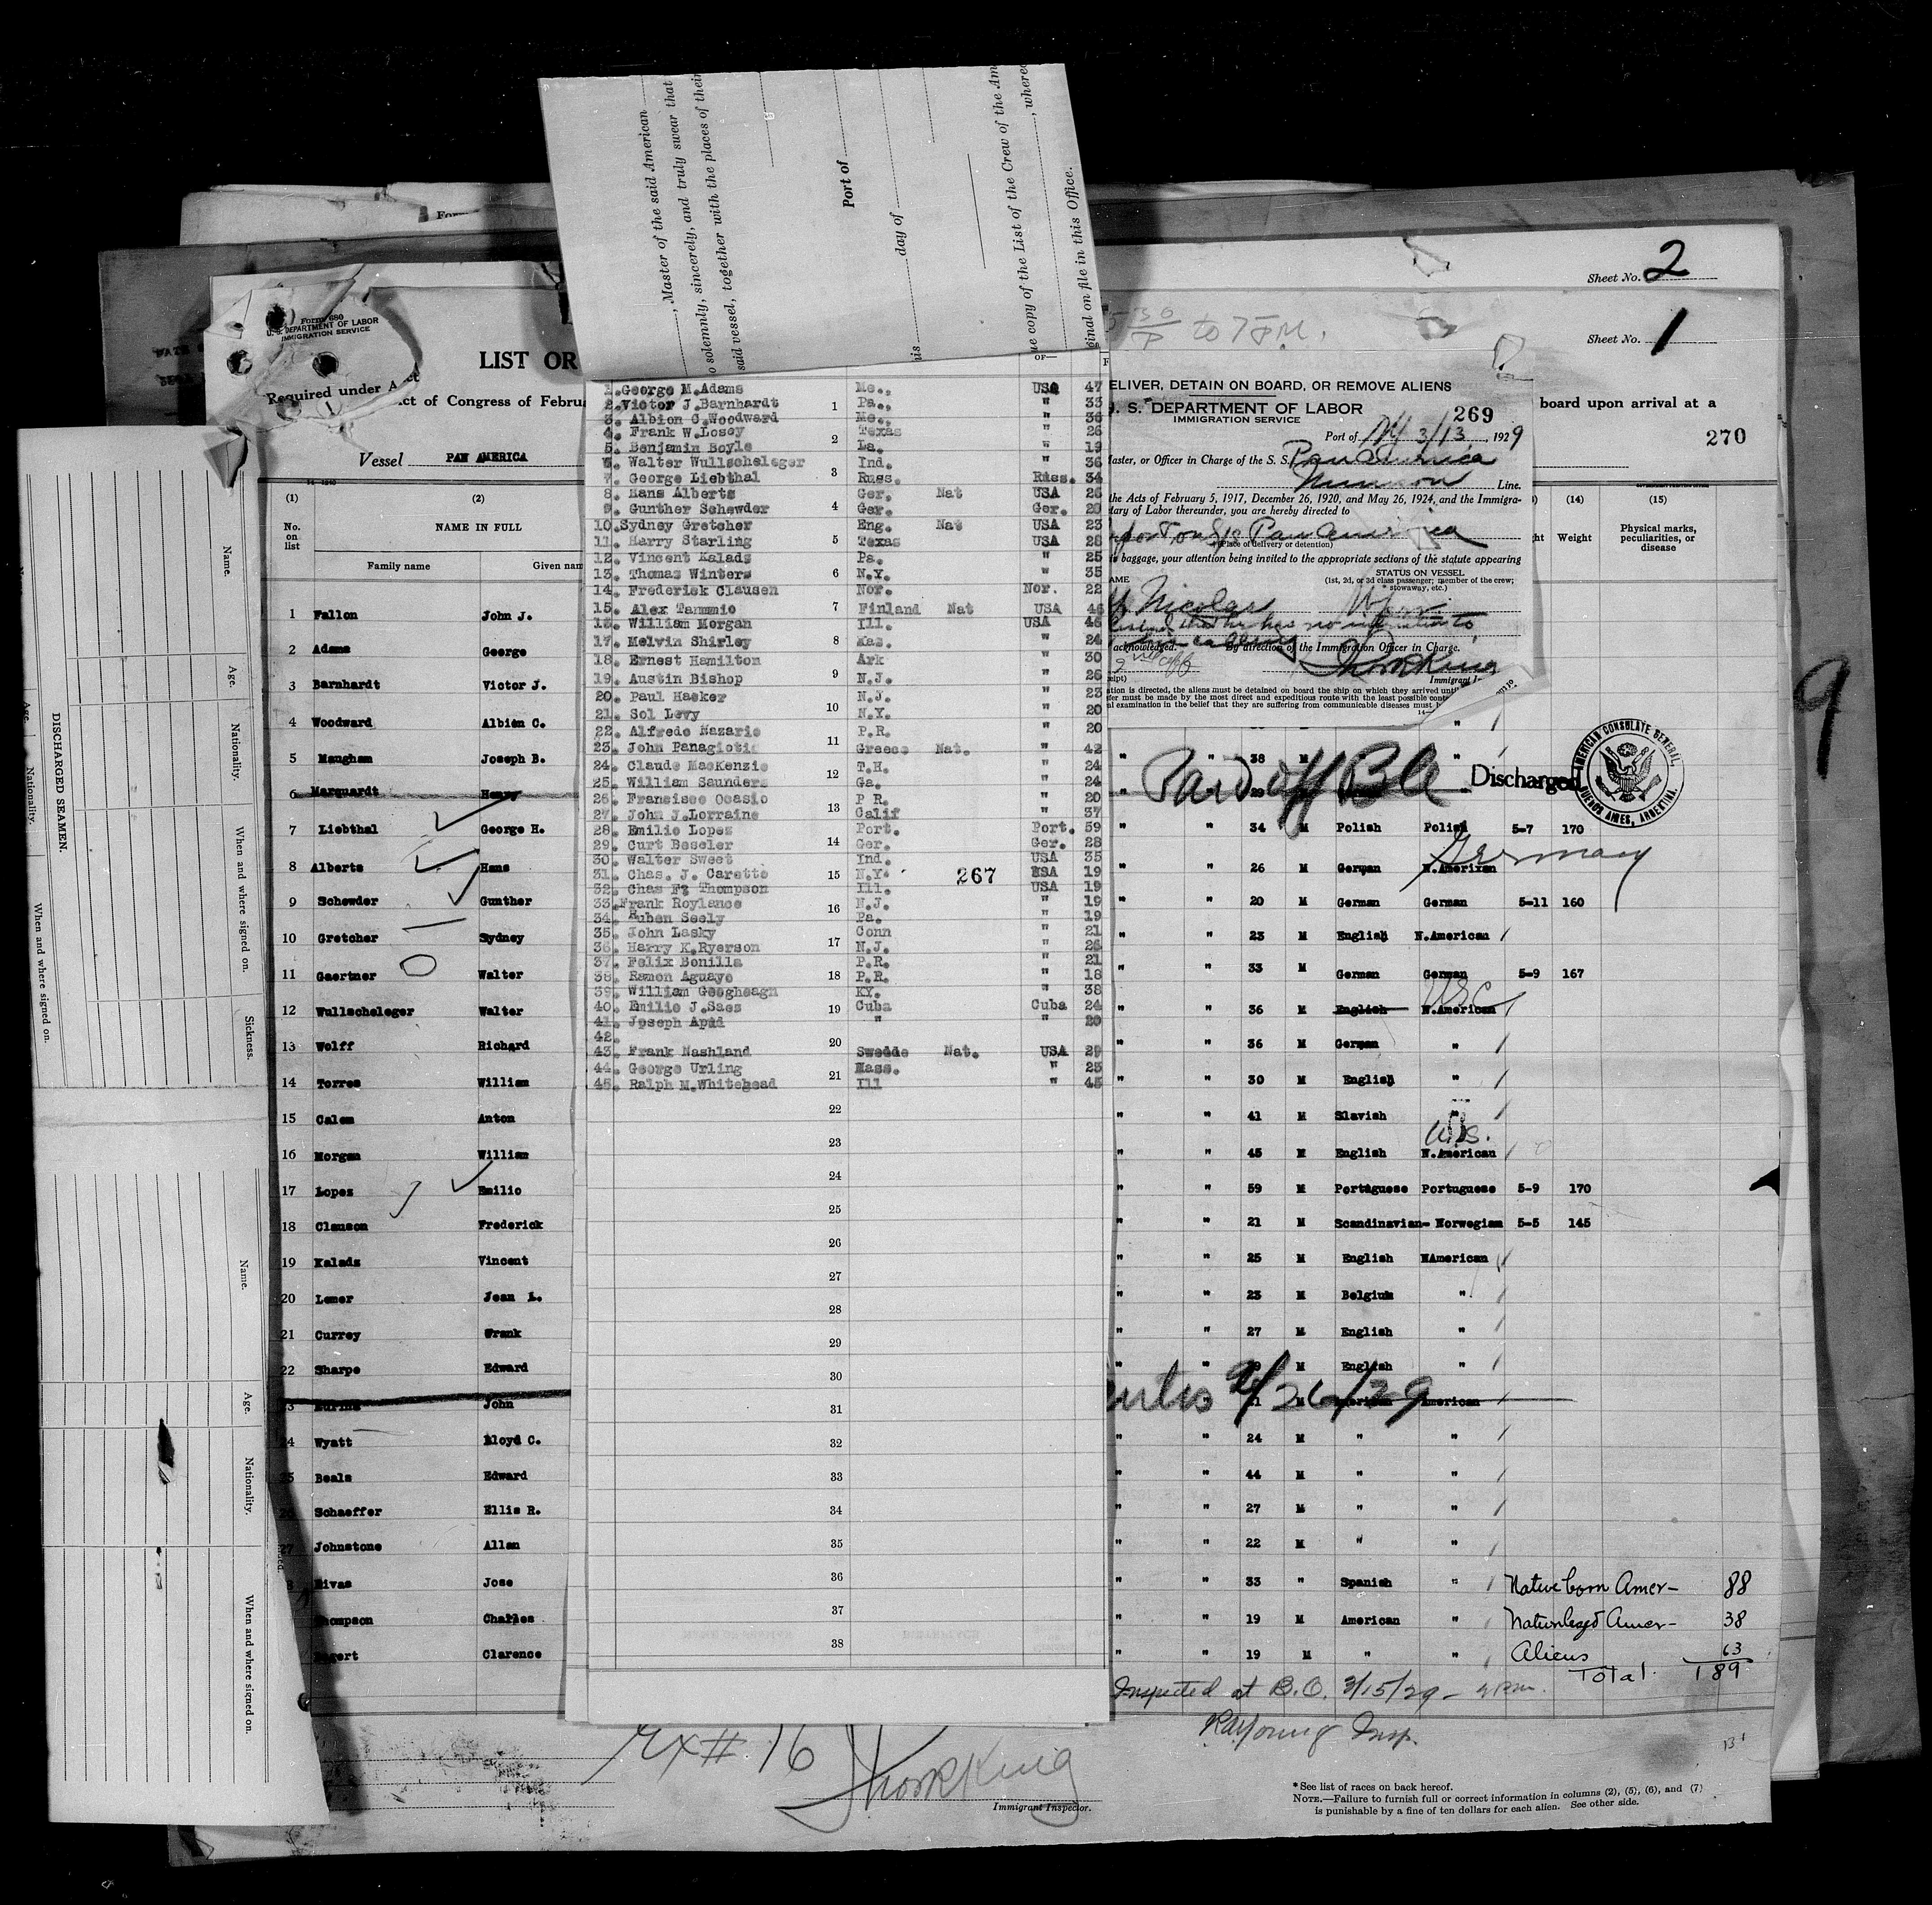 Form
Sheet No. 2
Sheet No. 1
to 7 P.M.
, Master of the said American
solemnly, sincerely, and truly swear that
said vessel, together with the places of their
Port of
day of
copy of the List of the Crew of the Am
, where
ginal on file in this Office.
Form 680
U. S. DEPARTMENT OF LABOR
IMMIGRATION SERVICE
LIST OR
Required under Act
Act of Congress of Februa
board upon arrival at a
270
Vessel PAN AMERICA
ELIVER, DETAIN ON BOARD, OR REMOVE ALIENS
U. S. DEPARTMENT OF LABOR
IMMIGRATION SERVICE
269
Port of NY 3/13, 1929
Master, or Officer in Charge of the S. S. Pan America
Munson Line.
the Acts of February 5, 1917, December 26, 1920, and May 26, 1924, and the Immigra-
tary of Labor thereunder, you are hereby directed to
on S/S Pan America
(Place of delivery or detention)
baggage, your attention being invited to the appropriate sections of the statute appearing
NAME
STATUS ON VESSEL
(1st, 2d, or 3d class passenger; member of the crew;
stowaway, etc.)
Nicolas
he has no
acknowledged. By direction of the Immigration Officer in Charge.
Immigrant
tion is directed, the aliens must be detained on board the ship on which they arrived
fer must be made by the most direct and expeditious route with the least possible
al examination in the belief that they are suffering from communicable diseases must
OF—
1. George M. Adams Me., USA 47
2. Victor J. Barnhardt Pa., " 33
3. Albion C. Woodward Me., " 36
4. Frank W. Losey Texas " 26
5. Benjamin Boyle La. " 19
6. Walter Wullscheleger Ind. " 36
7. George Liebthal Russ. Russ. 34
8. Hans Alberts Ger. Nat USA 26
9. Gunther Schewder Ger. Ger. 20
10. Sydney Gretcher Eng. Nat USA 23
11. Harry Starling Texas USA 28
12. Vincent Kalads Pa. " 25
13. Thomas Winters N.Y. " 35
14. Frederick Clausen Nor. Nor. 22
15. Alex Tammmio Finland Nat USA 46
16. William Morgan Ill. USA 45
17. Melvin Shirley Kas. " 24
18. Ernest Hamilton Ark " 30
19. Austin Bishop N.J. " 26
20. Paul Hacker N.J. " 23
21. Sol Levy N.Y. " 20
22. Alfredo Nazario P.R. " 20
23. John Panagiotis Greece Nat. " 42
24. Claude MacKenzie T.H. " 24
25. William Saunders Ga. " 24
26. Francisco Ocasio P R. " 20
27. John J. Lorraine Calif " 37
28. Emilio Lopes Port. Port. 59
29. Curt Beseler Ger. Ger. 28
30. Walter Sweet Ind. USA 35
31. Chas. J. Carette N.Y. USA 19
267
32. Chas F. Thompson Ill. USA 19
33. Frank Roylance N.J. " 19
34. Ruben Seely Pa. " 19
35. John Lasky Conn " 21
36. Harry K. Ryerson N.J. " 26
37. Felix Bonilla P.R. " 21
38. Ramon Aguaye P.R. " 18
39. William Geogheagn KY. " 38
40. Emilio J. Saes Cuba Cuba 24
41. Joseph Apad " " 20
42.
43. Frank Nashland Swedde Nat. USA 29
44. George Urling Mass. " 23
45. Ralph M. Whitehead Ill " 45
1
2
3
4
5
6
7
8
9
10
11
12
13
14
15
16
17
18
19
20
21
22
23
24
25
26
27
28
29
30
31
32
33
34
35
36
37
38
(1) (2) (14) (15)
No. on list
NAME IN FULL
Family name Given nam
Weight
Physical marks, peculiarities, or disease
1 Fallon John J.
2 Adams George
3 Barnhardt Victor J.
4 Woodward Albion C. "
5 Maugham Joseph B. " " 38 M "
6 Marquardt Henry " 29
Paid off BA
Discharged
AMERICAN CONSULATE GENERAL, BUENOS AIRES, ARGENTINA.
7 Liebthal George H. " " 34 M Polish Polish 5-7 170
Germany
8 Alberts Hans " " 26 M German N.American
9 Schewder Gunther " " 20 M German German 5-11 160
10 Gretcher Sydney " " 23 M English N.American
11 Gaertner Walter " " 33 M German German 5-9 167
USC
12 Wullscheleger Walter " " 36 M English N.American
13 Wolff Richard " " 36 M German "
14 Torres William " " 30 M English "
15 Calem Anton " " 41 M Slavish "
U.S.
16 Morgan William " " 45 M English N.American
17 Lopez Emilio " " 59 M Portuguese Portuguese 5-9 170
18 Clauson Frederick " " 21 M Scandinavian- Norwegian 5-5 145
19 Kalads Vincent " " 25 M English NAmerican
20 Lemer Jean L. " " 23 M Belgium "
21 Currey Frank " " 27 M English "
22 Sharpe Edward " " M English "
23 John M American American
2/26/29
24 Wyatt Lloyd C. " " 24 M " "
25 Beals Edward " " 44 M " "
26 Schaeffer Ellis R. " " 27 M " "
27 Johnstone Allan " " 22 M " "
Rivas Jose " " 33 " Spanish "
Thompson Charles " " 19 M American "
Clarence " " 19 M " "
Native born Amer- 88
Naturalized Amer- 38
Aliens 63
Total 189
Inspected at B.O. 3/15/29
R.A. Young Insp.
Ex# 16
Immigrant Inspector.
* See list of races on back hereof.
NOTE.—Failure to furnish full or correct information in columns (2), (5), (6), and (7)
is punishable by a fine of ten dollars for each alien. See other side.
9
DISCHARGED SEAMEN.
Name.
Age.
Nationality.
When and where signed on.
Sickness.
Age.
Nationality.
When and where signed on.
Name.
Age.
Nationality.
When and where signed on.